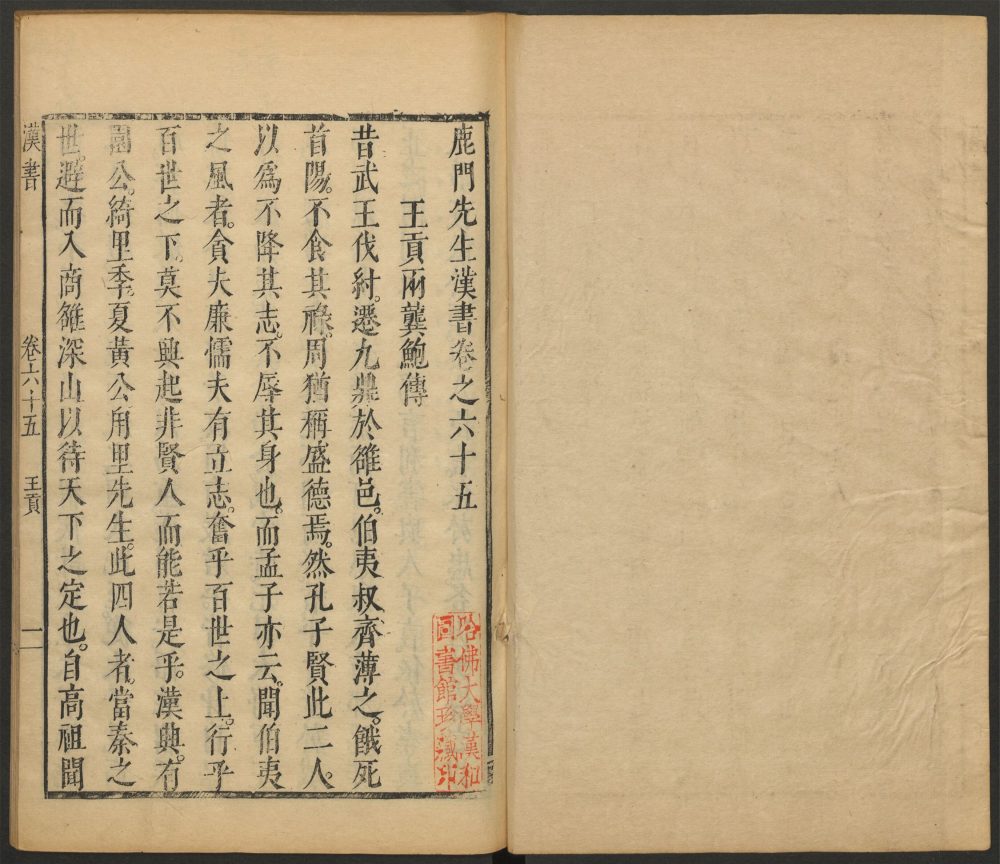 鹿門先生漢書卷之六十五
王貢兩龔鮑傳
昔武王伐紂。遷九鼎於雒邑。伯夷叔齊薄之。餓死
首陽。不食其祿。周猶稱盛德焉。然孔子賢此二人。
以爲不降其志。不辱其身也。而孟子亦云。聞伯夷
之風者。貪夫廉懦夫有立志。奮乎百世之上。行乎
百世之下。莫不興起非賢人而能若是乎。漢興。有
園公。綺里季。夏黃公用里先生。此四人者。當秦之
世。避而入商雒深山以待天下之定也。自高祖聞
漢書 卷六十五 王貢 一
哈佛大學漢和
圖書館珍藏印